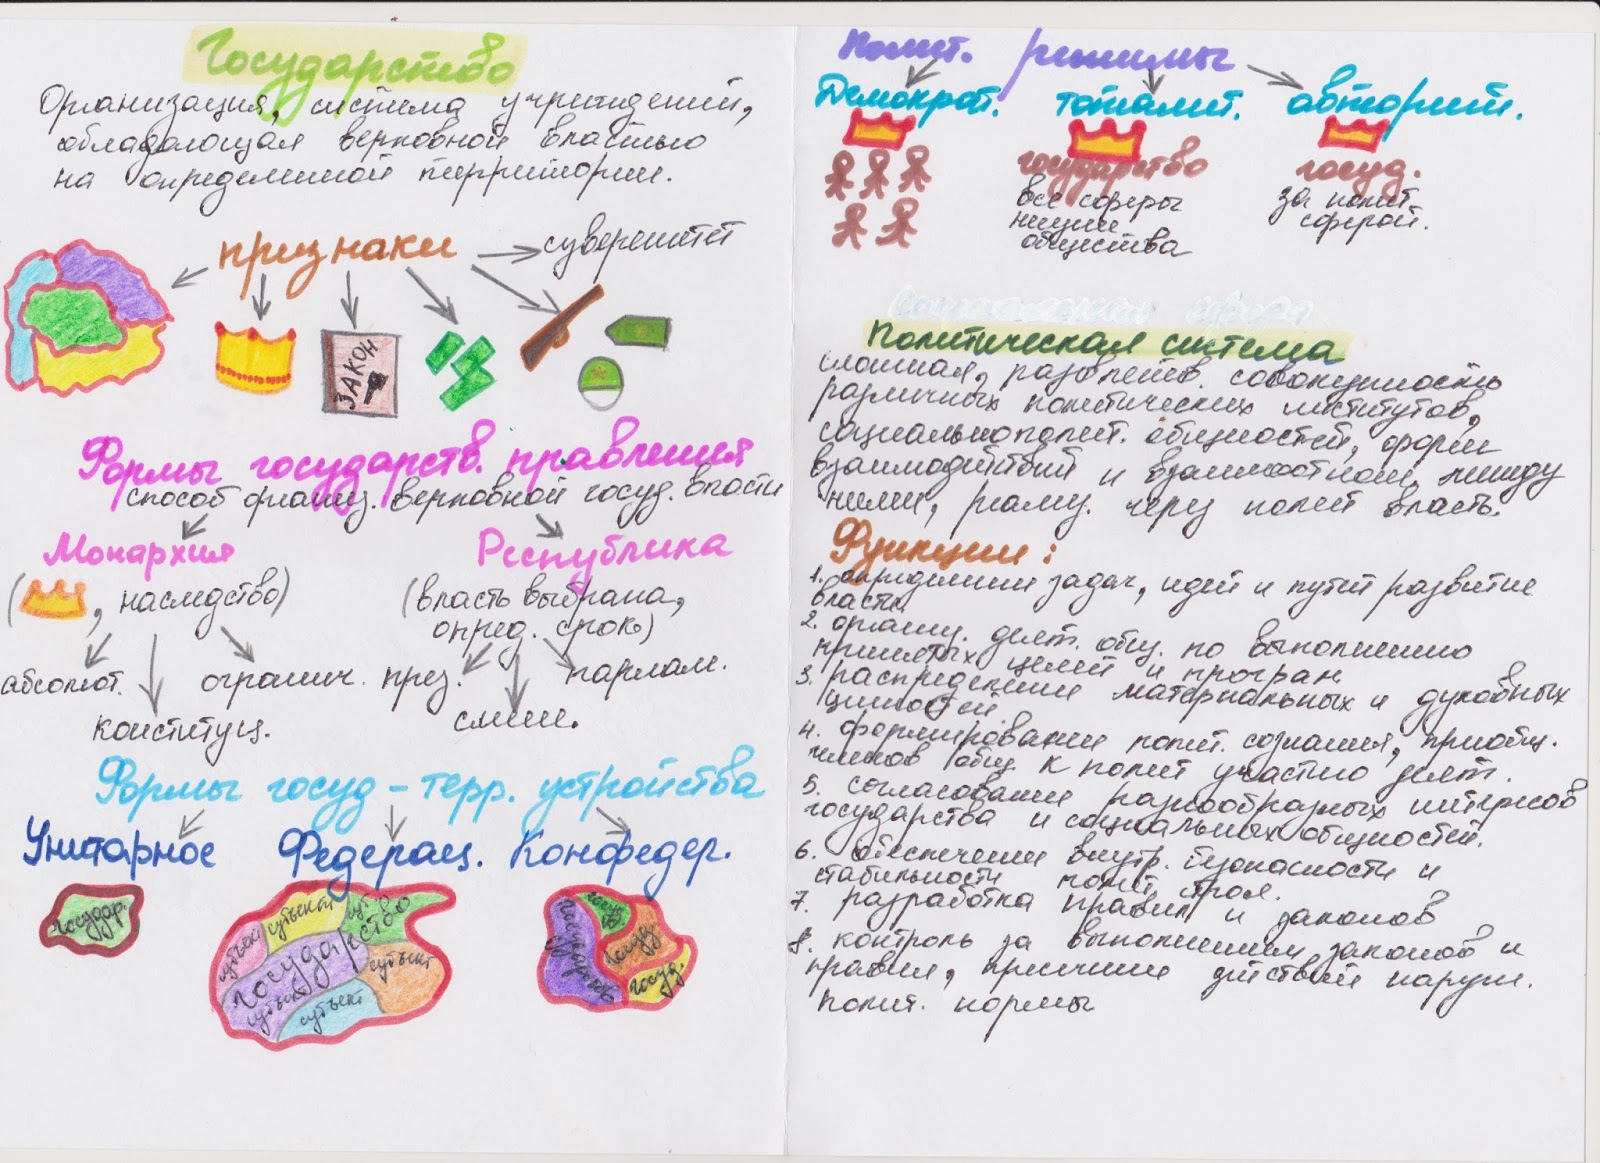 Государство
Организация, система учреждений,
обладающая верховной властью
на определенной территории.
признаки
суверенитет
ЗАКОН
Формы государств. правления
способ организ. верховной госуд. власти
Монархия
Республика
(, наследство)
(власть выбрана,
опред. срок)
абсолют.
огранич.
през.
парлам.
конституц.
смеш.
Формы госуд-терр. устройства
Унитарное
Федерац.
Конфедер.
государ.
субъект
субъект
государство
субъект
субъект
субъект
государство
госуд.
госуд.
Полит. режимы
Демократ.
тоталит.
авторит.
государство
госуд.
все сферы
жизни
общества
за полит
сферой.
Политическая система
сложная, разветв. совокупность
различных политических институтов,
социальнополит. общностей, форм
взаимодействий и взаимоотнош. между
ними, реализ. через полит власть.
Функции:
1. определении задач, идей и путей развитие
власти
2. организ. деят. общ. по выполнению
принятых целей и програм.
3. распределении материальных и духовных
ценностей.
4. формировании полит. сознания, приобщ.
членов общ к полит участию деят.
5. согласовании разнообразных интересов
государства и социальных общностей.
6. обеспечении внутр. безопасности и
стабильности полит. строя.
7. разработка правил и законов
8. контроль за выполнением законов и
правил, пресечении действий наруш.
полит. нормы